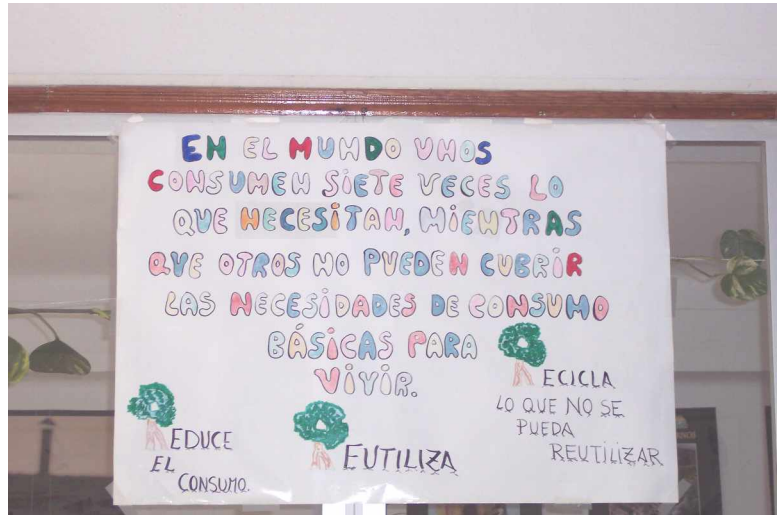 EN EL MUNDO UNOS
CONSUMEN SIETE VECES LO
QUE NECESITAN, MIENTRAS
QUE OTROS NO PUEDEN CUBRIR
LAS NECESIDADES DE CONSUMO
BÁSICAS PARA
VIVIR.
REDUCE
EL
CONSUMO.
REUTILIZA
RECICLA
LO QUE NO SE
PUEDA
REUTILIZAR